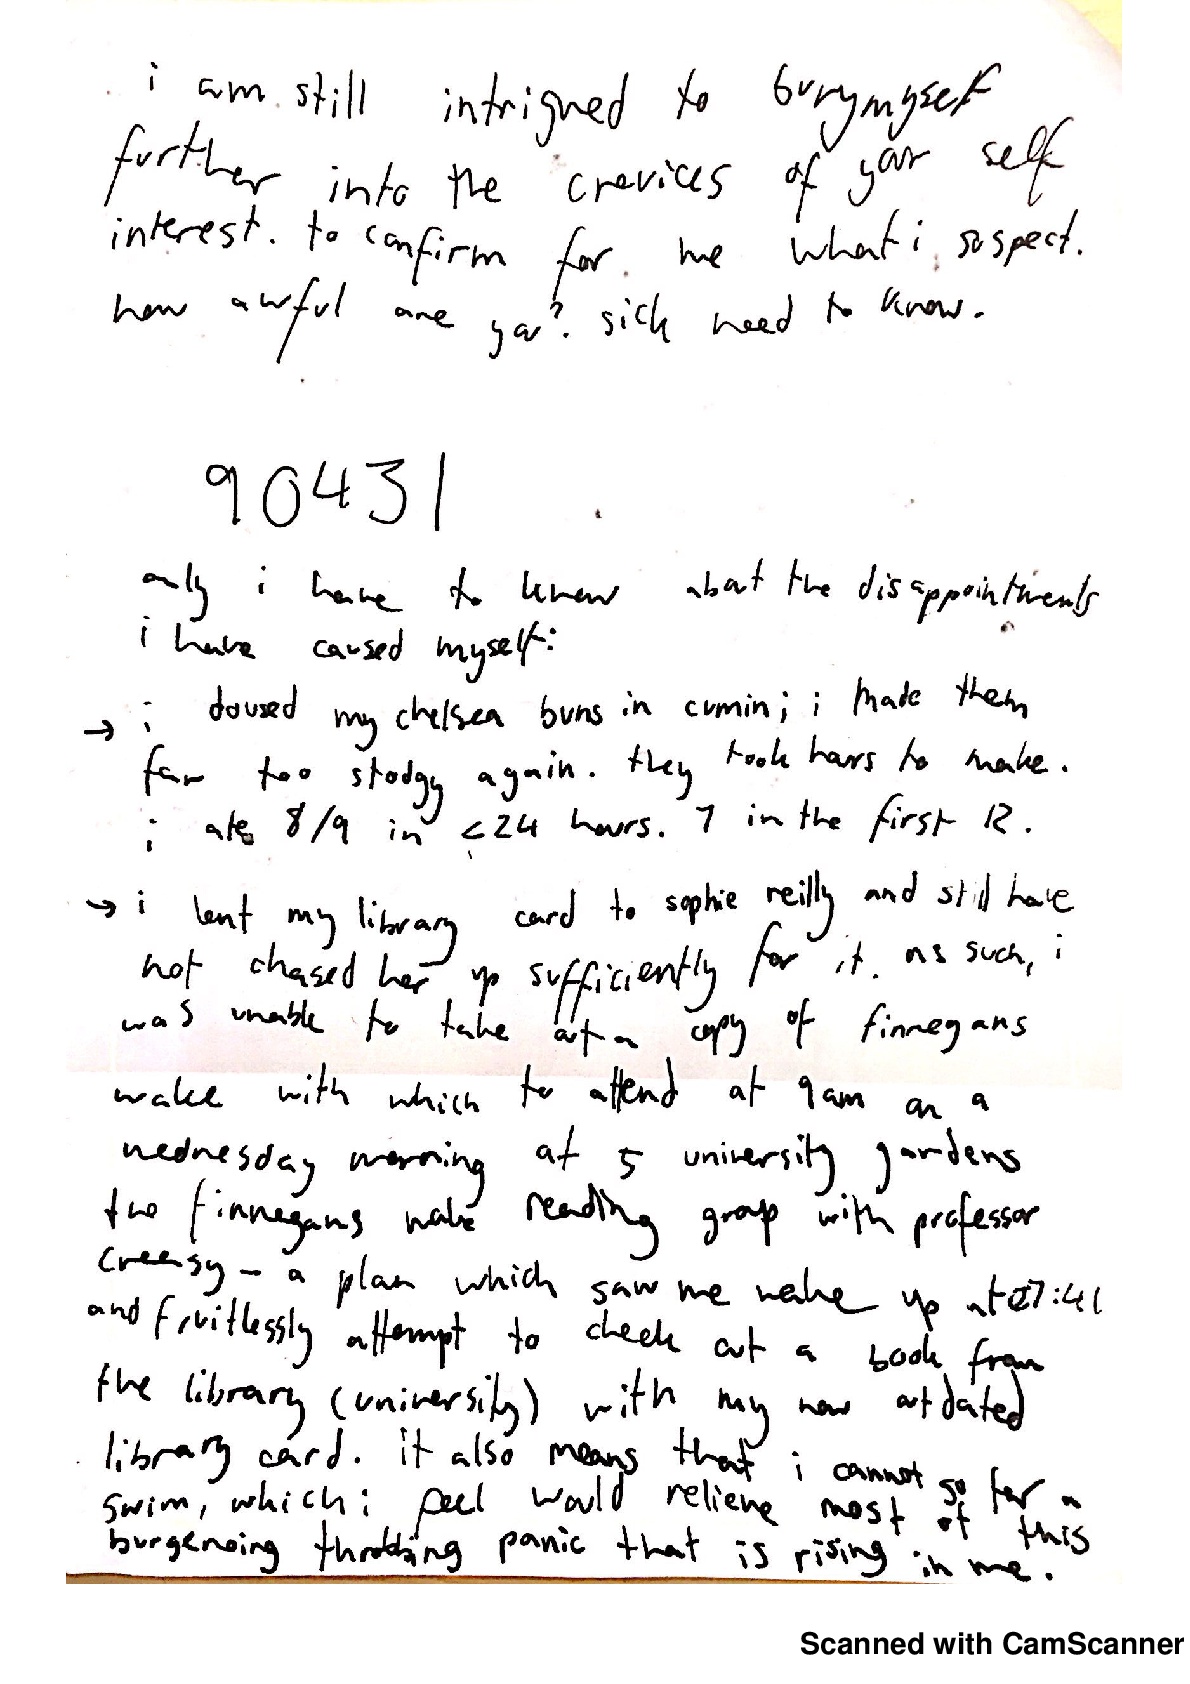 i am still intrigued to bury myself
further into the crevices of your self
interest. to confirm for me what i suspect.
how awful are you? sick need to know.
90431
only i have to know about the disappointments
i have caused myself:
→ i doused my chelsea buns in cumin; i made them
far too stodgy again. they took hours to make.
i ate 8/9 in <24 hours. 7 in the first 12.
→ i lent my library card to sophie reilly and still have
not chased her up sufficiently for it. as such, i
was unable to take out a copy of finnegans
wake with which to attend at 9am on a
wednesday morning at 5 university gardens
the finnegans wake reading group with professor
creasy - a plan which saw me wake up at 07:41
and fruitlessly attempt to check out a book from
the library (university) with my now outdated
library card. it also means that i cannot go for a
swim, which i feel would relieve most of this
burgeoning throbbing panic that is rising in me.
Scanned with CamScanner